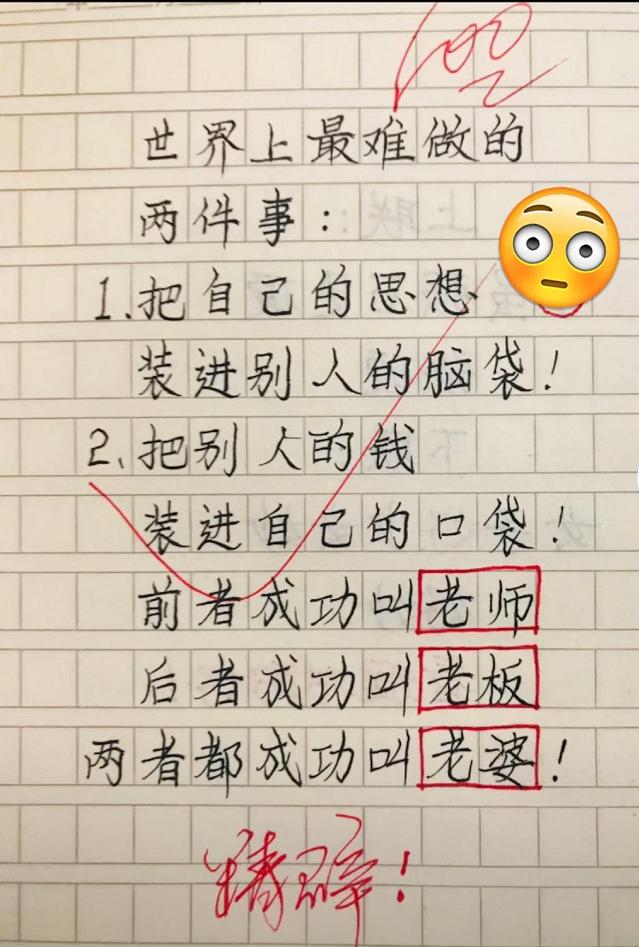 100
世界上最难做的
两件事：
1.把自己的思想
装进别人的脑袋！
2、把别人的钱
装进自己的口袋！
前者成功叫老师
后者成功叫老板
两者都成功叫老婆！
精辟！